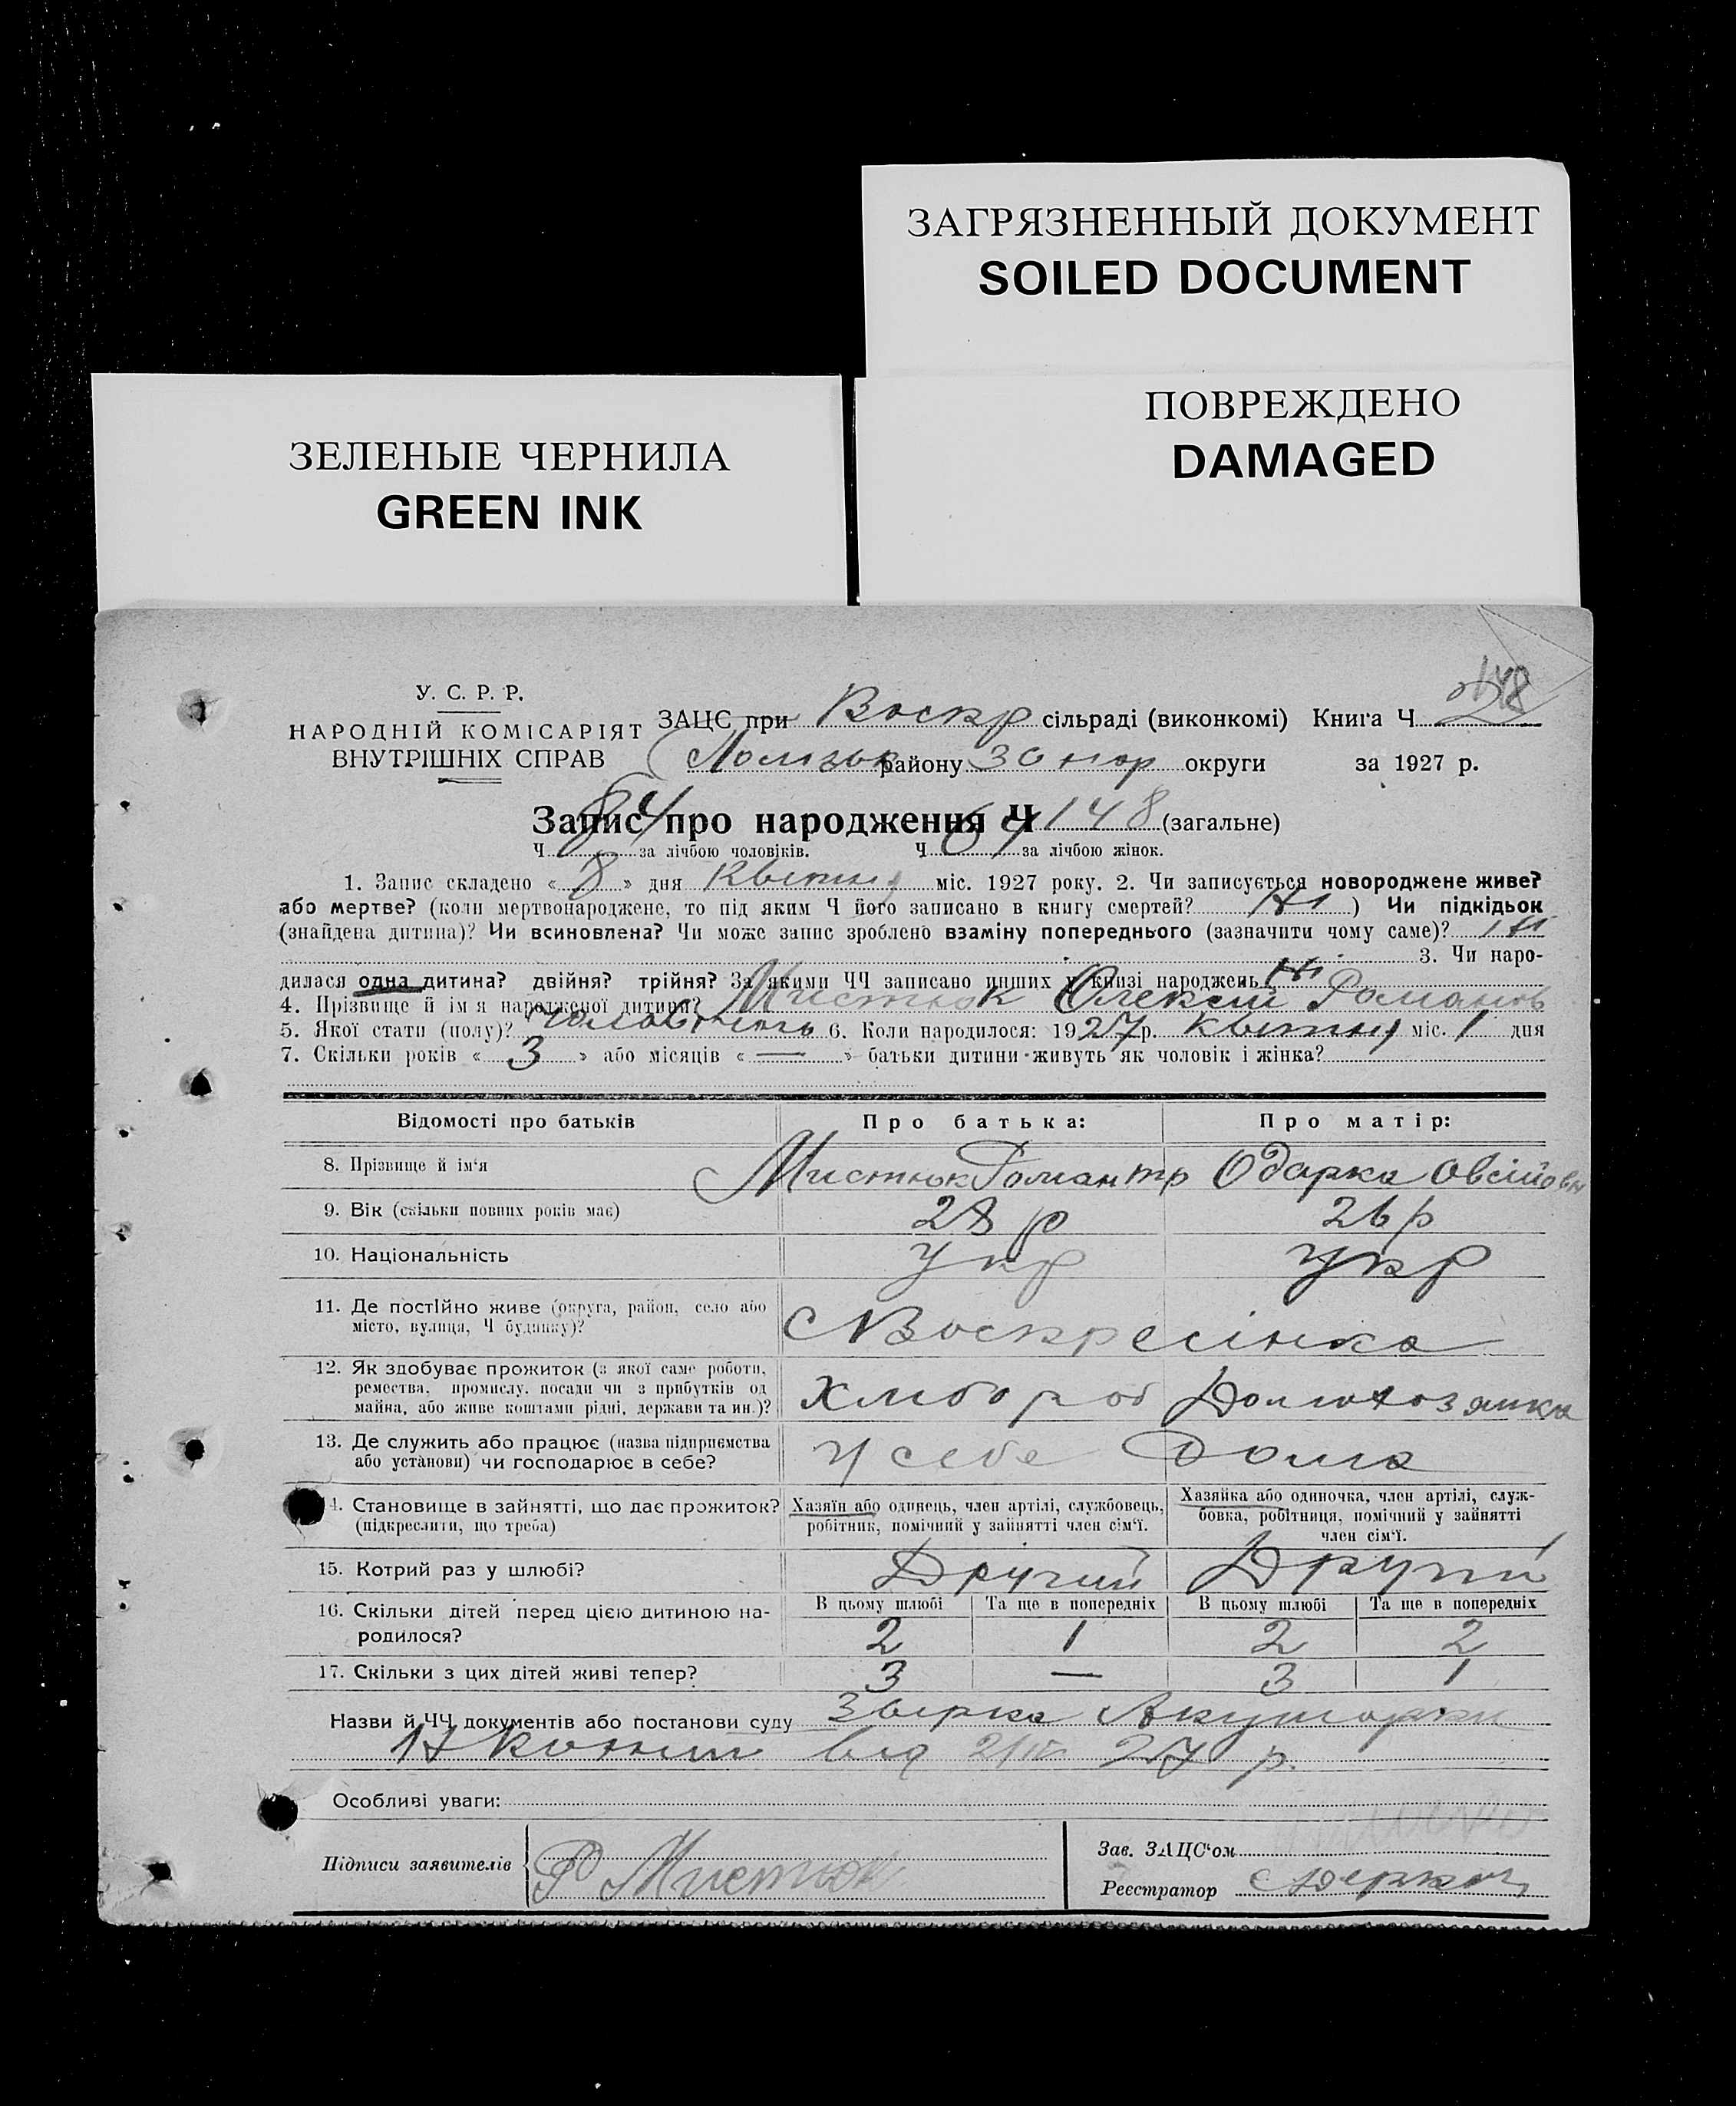 ЗАГРЯЗНЕННЫЙ ДОКУМЕНТ
SOILED DOCUMENT
ПОВРЕЖДЕНО
DAMAGED
ЗЕЛЕНЫЕ ЧЕРНИЛА
GREEN INK
148
У. С. Р. Р.
НАРОДНІЙ КОМІСАРІЯТ
ВНУТРІШНІХ СПРАВ
ЗАЦС при Воскр сільраді (виконкомі) Книга Ч 2
району Запор округи за 1927 р.
Запис про народження Ч 148 (загальне)
Ч 84 за лічбою чоловіків. Ч 64 за лічбою жінок.
1. Запис складено « 8 » дня Квітня міс. 1927 року. 2. Чи записується новороджене живе?
або мертве? (коли мертвонароджене, то під яким Ч його записано в книгу смертей? Ні ) Чи підкідьок
(знайдена дитина)? Чи всиновлена? Чи може запис зроблено взаміну попереднього (зазначити чому саме)? Ні
3. Чи наро-
дилася одна дитина? двійня? трійня? За якими ЧЧ записано инших у книзі народжень Ні
4. Прізвище й ім'я народженої дитини? Мистюк Олексій Романов
5. Якої стати (полу)? 6. Коли народилося: 1927 р. квітня міс. 1 дня
7. Скільки років « 3 » або місяців « — » батьки дитини живуть як чоловік і жінка?
Відомості про батьків Про батька: Про матір:
8. Прізвище й ім'я Мистюк Роман Одарка Овсійовн
9. Вік (скільки повних років має) 28 р 26 р
10. Національність Укр Укр
11. Де постійно живе (округа, район, село або
місто, вулиця, Ч будинку)? Воскресінка
12. Як здобуває прожиток (з якої саме роботи,
ремества, промислу, посади чи з прибутків од
майна, або живе коштами рідні, держави та ин.)? Хлибороб Домохозяйка
13. Де служить або працює (назва підприємства
або установи) чи господарює в себе? У себе Дома
14. Становище в зайнятті, що дає прожиток?
(підкреслити, що треба)
Хазяїн або одинець, член артілі, службовець,
робітник, помічний у зайнятті член сім'ї.
Хазяйка або одиночка, член артілі, служ-
бовка, робітниця, помічний у зайнятті
член сім'ї.
15. Котрий раз у шлюбі? Другий Другий
16. Скільки дітей перед цією дитиною на-
родилося?
В цьому шлюбі Та ще в попередніх В цьому шлюбі Та ще в попередніх
2 1 2 2
17. Скільки з цих дітей живі тепер? 3 — 3 1
Назви й ЧЧ документів або постанови суду Звірка Акушорки
від 2/IV 27 р.
Особливі уваги:
Підписи заявителів Р Мистюк
Зав. ЗАЦС'ом
Реєстратор Деркач